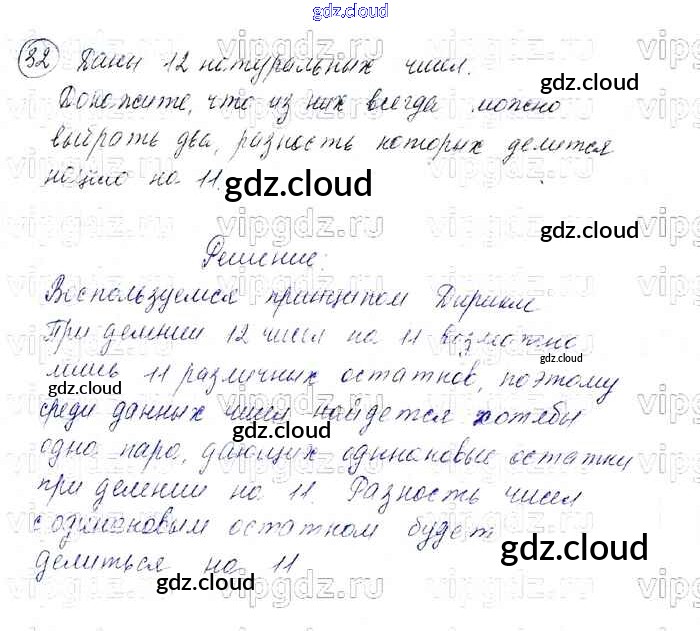 gdz.cloud
32 Даны 12 натуральных чисел.
Докажите, что из них всегда можно
выбрать два, разность которых делится
нацело на 11.
Решение:
Воспользуемся принципом Дирихле
При делении 12 чисел на 11 возможно
лишь 11 различных остатков, поэтому
среди данных чисел найдется хотябы
одна пара, дающих одинаковые остатки
при делении на 11. Разность чисел
с одинаковым остатком будет
делиться на 11